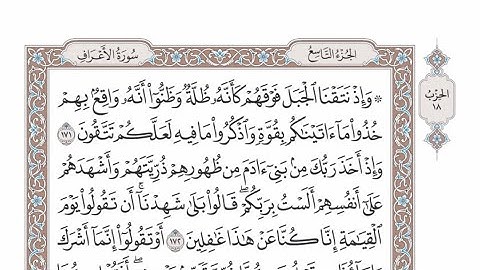 سُورَةُ الأَعْرَافِ
الجُزْءُ التَّاسِعُ
الحِزْبُ
١٨
۞ وَإِذْ نَتَقْنَا ٱلْجَبَلَ فَوْقَهُمْ كَأَنَّهُۥ ظُلَّةٌ وَظَنُّوٓا۟ أَنَّهُۥ وَاقِعٌۢ بِهِمْ
خُذُوا۟ مَآ ءَاتَيْنَٰكُم بِقُوَّةٍ وَٱذْكُرُوا۟ مَا فِيهِ لَعَلَّكُمْ تَتَّقُونَ ١٧١
وَإِذْ أَخَذَ رَبُّكَ مِنۢ بَنِىٓ ءَادَمَ مِن ظُهُورِهِمْ ذُرِّيَّتَهُمْ وَأَشْهَدَهُمْ
عَلَىٰٓ أَنفُسِهِمْ أَلَسْتُ بِرَبِّكُمْ ۖ قَالُوا۟ بَلَىٰ ۛ شَهِدْنَآ ۛ أَن تَقُولُوا۟ يَوْمَ
ٱلْقِيَٰمَةِ إِنَّا كُنَّا عَنْ هَٰذَا غَٰفِلِينَ ١٧٢ أَوْ تَقُولُوٓا۟ إِنَّمَآ أَشْرَكَ